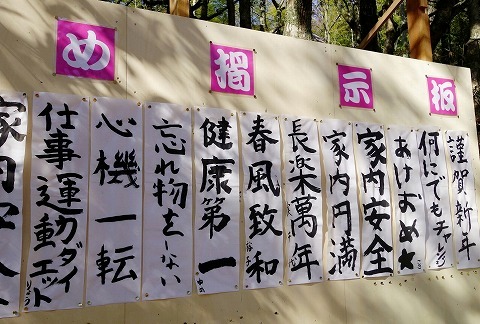 め掲示板
謹賀新年
何にでもチャレンジ
あけおめ
家内安全
家内円満
長楽萬年
春風致和
健康第一
ゆの
忘れ物をしない
心機一転
仕事運動ダイエット
りょう
家内安全